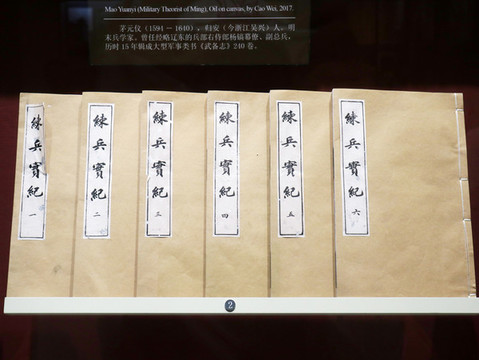 Mao Yuanyi (Military Theorist of Ming), Oil on canvas, by Cao Wei, 2017.
茅元仪（1591－1640），归安（今浙江吴兴）人。明
末兵学家。曾任经略辽东的兵部右侍郎杨镐幕僚、副总兵，
历时15年辑成大型军事类书《武备志》240卷。
練兵實紀 一
練兵實紀 二
練兵實紀 三
練兵實紀 四
練兵實紀 五
練兵實紀 六
2